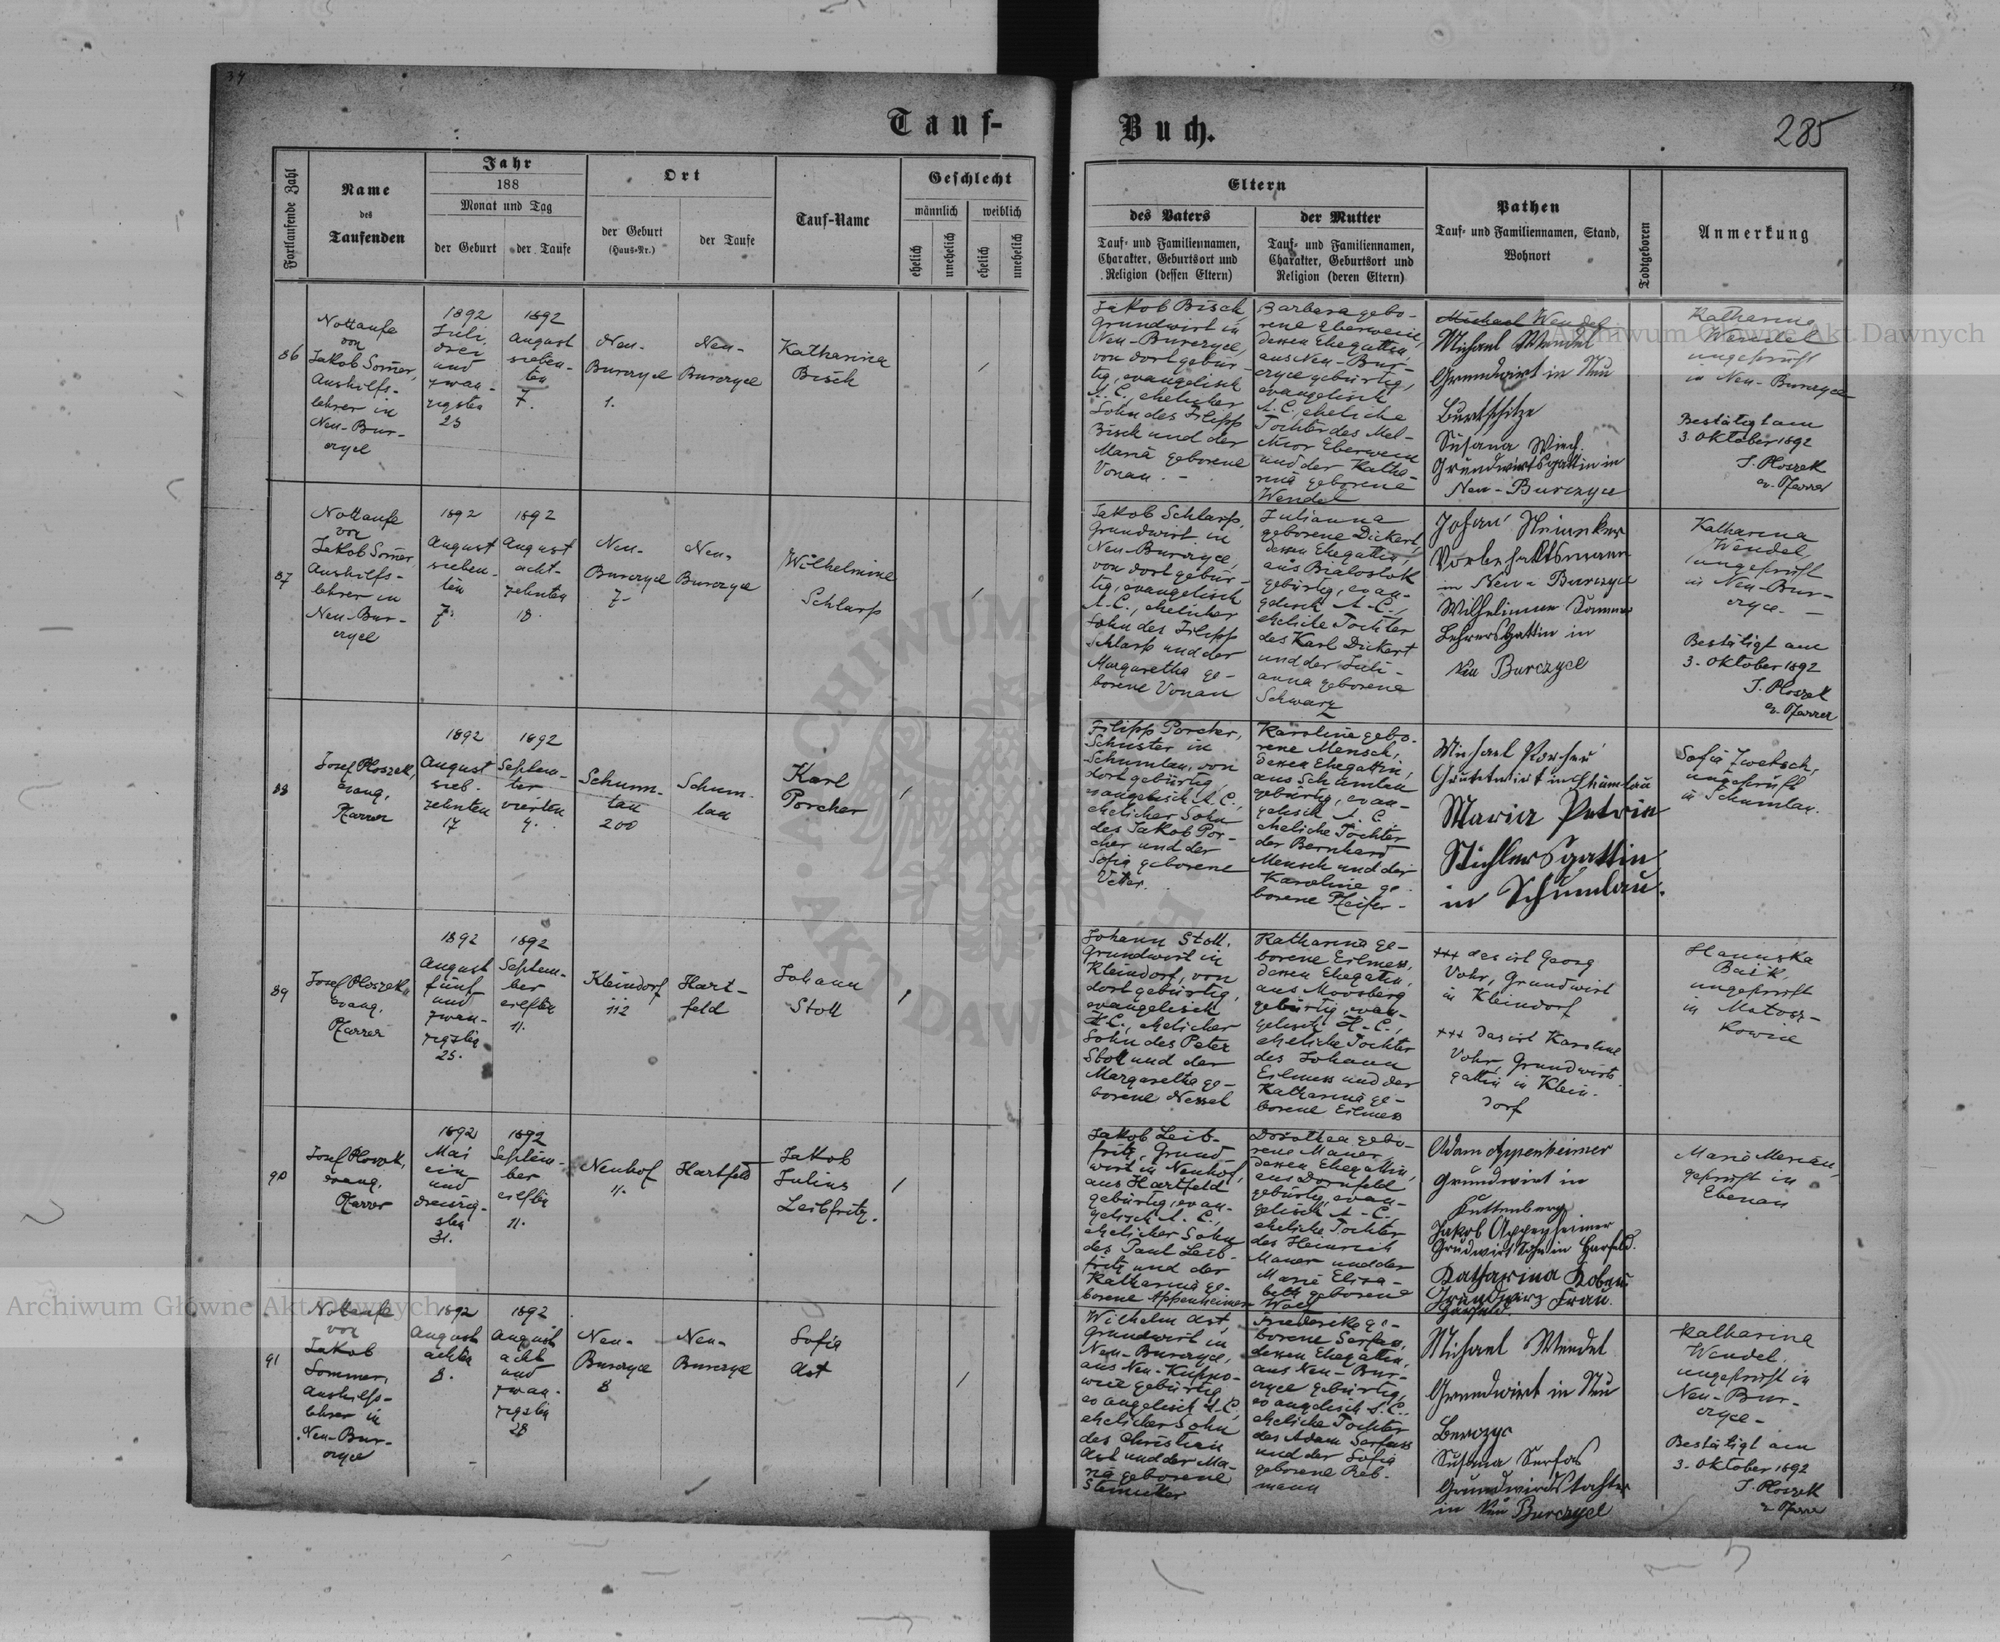 34
Tauf-
Buch.
285
Fortlaufende Zahl
Name
des
Taufenden
Jahr
188
Monat und Tag
der Geburt
der Taufe
Ort
der Geburt
(Haus-Nr.)
der Taufe
Tauf-Name
Geschlecht
männlich
weiblich
ehelich
unehelich
ehelich
unehelich
Eltern
des Vaters
Tauf- und Familiennamen,
Charakter, Geburtsort und
Religion (dessen Eltern)
der Mutter
Tauf- und Familiennamen,
Charakter, Geburtsort und
Religion (deren Eltern)
Pathen
Tauf- und Familiennamen, Stand,
Wohnort
Todtgeboren
Anmerkung
86
Nottaufe
von
Jakob Somer,
Aushilfs-
lehrer in
Neu-Bur-
czyce
1892
Juli
drei
und
zwan-
zigsten
23
1892
August
sieben-
ten
7.
Neu-
Burczyce
1.
Neu-
Burczyce
Katharina
Bisch
Jakob Bisch,
Grundwirt in
Neu-Burczyce,
von dort gebür-
tig, evangelisch
A.C., ehelicher
Sohn des Filipp
Bisch und der
Maria geborene
Vonau.
Barbara gebo-
rene Eberwein,
dessen Ehegattin,
aus Neu-Bur-
czyce gebürtig,
evangelisch
A.C., eheliche
Tochter des Mel-
chior Eberwein
und der Katha-
rina geborene
Wendel
Michael Wendel
Michael Wendel
Grundwirt in Neu
Burtschitze
Susana Wied
Grundwirtsgattin in
Neu-Burczyce
Katharina
Wendel
ungeprüft
in Neu-Burczyce
Bestätigt am
3. Oktober 1892
J. Ploszek
ev. Pfarrer
87
Nottaufe
von
Jakob Somer,
Aushilfs-
lehrer in
Neu-Bur-
czyce
1892
August
sieben-
ten
7.
1892
August
acht-
zehnten
18.
Neu-
Burczyce
7.
Neu-
Burczyce
Wilhelmine
Schlarp
Jakob Schlarp,
Grundwirt in
Neu-Burczyce,
von dort gebür-
tig, evangelisch
A.C., ehelicher
Sohn des Filipp
Schlarp und der
Margaretha ge-
borene Vonau
Julianna
geborene Dickert,
dessen Ehegattin,
aus Bialostok
gebürtig, evan-
gelisch A.C.,
eheliche Tochter
des Karl Dickert
und der Juli-
anna geborene
Schwarz
in Neu-Burczyce
Wilhelmine Sommer
Lehrersgattin in
Neu Burczyce
Katharina
Wendel,
ungeprüft
in Neu-Bur-
czyce.
Bestätigt am
3. Oktober 1892
J. Ploszek
ev. Pfarrer
88
Josef Ploszek,
evang.
Pfarrer
1892
August
sieb-
zehnten
17
1892
Septem-
ber
vierten
4.
Schum-
lau
200
Schum-
lau
Karl
Porcher
Filipp Porcher,
Schuster in
Schumlau, von
dort gebürtig,
evangelisch A.C.,
ehelicher Sohn
des Jakob Por-
cher und der
Sofia geborene
Vetter.
Karoline gebo-
rene Mensch,
dessen Ehegattin,
aus Schumlau
gebürtig, evan-
gelisch A.C.
eheliche Tochter
der Bernhard
Mensch und der
Karoline ge-
borene Pfeifer.
Michael Porcher
Maria Petrin
Tichlersgattin
in Schumlau.
Sofia Zwetsch,
ungeprüft
in Schumlau.
89
Josef Ploszek,
evang.
Pfarrer
1892
August
fünf
und
zwan-
zigsten
25.
1892
Septem-
ber
eilften
11.
Kleindorf
112
Hart-
feld
Johann
Stoll
Johann Stoll,
Grundwirt in
Kleindorf, von
dort gebürtig,
evangelisch
H.C., ehelicher
Sohn des Peter
Stoll und der
Margaretha ge-
borene Nessel
Katharina ge-
borene Eilmess,
dessen Ehegattin,
aus Moosberg
gebürtig, evan-
gelisch H.C.,
eheliche Tochter
des Johann
Eilmess und der
Katharina ge-
borene Eilmess
+++ das ist Georg
Vohr, Grundwirt
in Kleindorf
+++ das ist Karoline
Vohr, Grundwirts-
gattin in Klein-
dorf
Hanuska
Baik,
ungeprüft
in Matosz-
kowice
90
Josef Ploszek,
evang.
Pfarrer
1892
Mai
ein
und
dreissig-
sten
31.
1892
Septem-
ber
eilften
11.
Neuhof
11.
Hartfeld
Jakob
Julius
Leibfritz.
Jakob Leib-
fritz, Grund-
wirt in Neuhof,
aus Hartfeld
gebürtig, evan-
gelisch A.C.,
ehelicher Sohn
des Paul Leib-
fritz und der
Katharina ge-
borene Appenheimer
Dorothea gebo-
rene Mauer,
dessen Ehegattin,
aus Dornfeld
gebürtig, evan-
gelisch A.C.
eheliche Tochter
des Heinrich
Mauer und der
Maria Elisa-
beth geborene
Adam Appenheimer
Grundwirt in
Kuttenberg
Jakob Appenheimer
Grundwirt Sohn in Harfeld.
Harfeld
geprüft in
Ebenau
91
Nottaufe
von
Jakob
Sommer,
Aushilfs-
lehrer in
Neu-Bur-
czyce
1892
August
achten
8.
1892
August
acht
und
zwan-
zigsten
28
Neu-
Burczyce
8
Neu-
Burczyce
Sofia
Ast
Wilhelm Ast,
Grundwirt in
Neu-Burczyce,
aus Neu-Kuppo-
wice gebürtig,
evangelisch H.C.,
ehelicher Sohn
des Christian
Ast und der Ma-
ria geborene
Friederike ge-
borene Serfass,
dessen Ehegattin,
aus Neu-Bur-
czyce gebürtig,
evangelisch H.C.,
eheliche Tochter
des Adam Serfass
und der Sofia
geborene Reb-
mann
Michael Wendel
Grundwirt in Neu
Berczyc
Susana Serfas
Grundwirdstochter
in Neu Burczyce
Katharina
Wendel,
ungeprüft in
Neu-Bur-
czyce-
Bestätigt am
3. Oktober 1892
J. Ploszek
ev. Pfarrer
Archiwum Główne Akt Dawnych
Archiwum Główne Akt Dawnych
ARCHIWUM GŁÓWNE AKT DAWNYCH